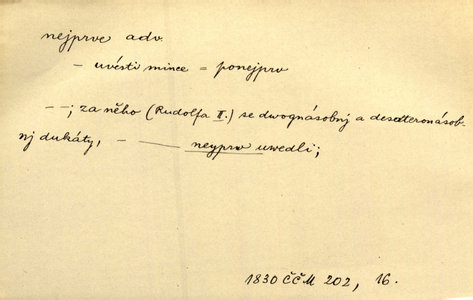 nejprve adv.
– uvésti mince = ponejprv
– –; za něho (Rudolfa II.) se dwognásobnj a desateronásob-
nj dukáty, – —— neyprw uwedli;
1830 ČČM 202, 16.